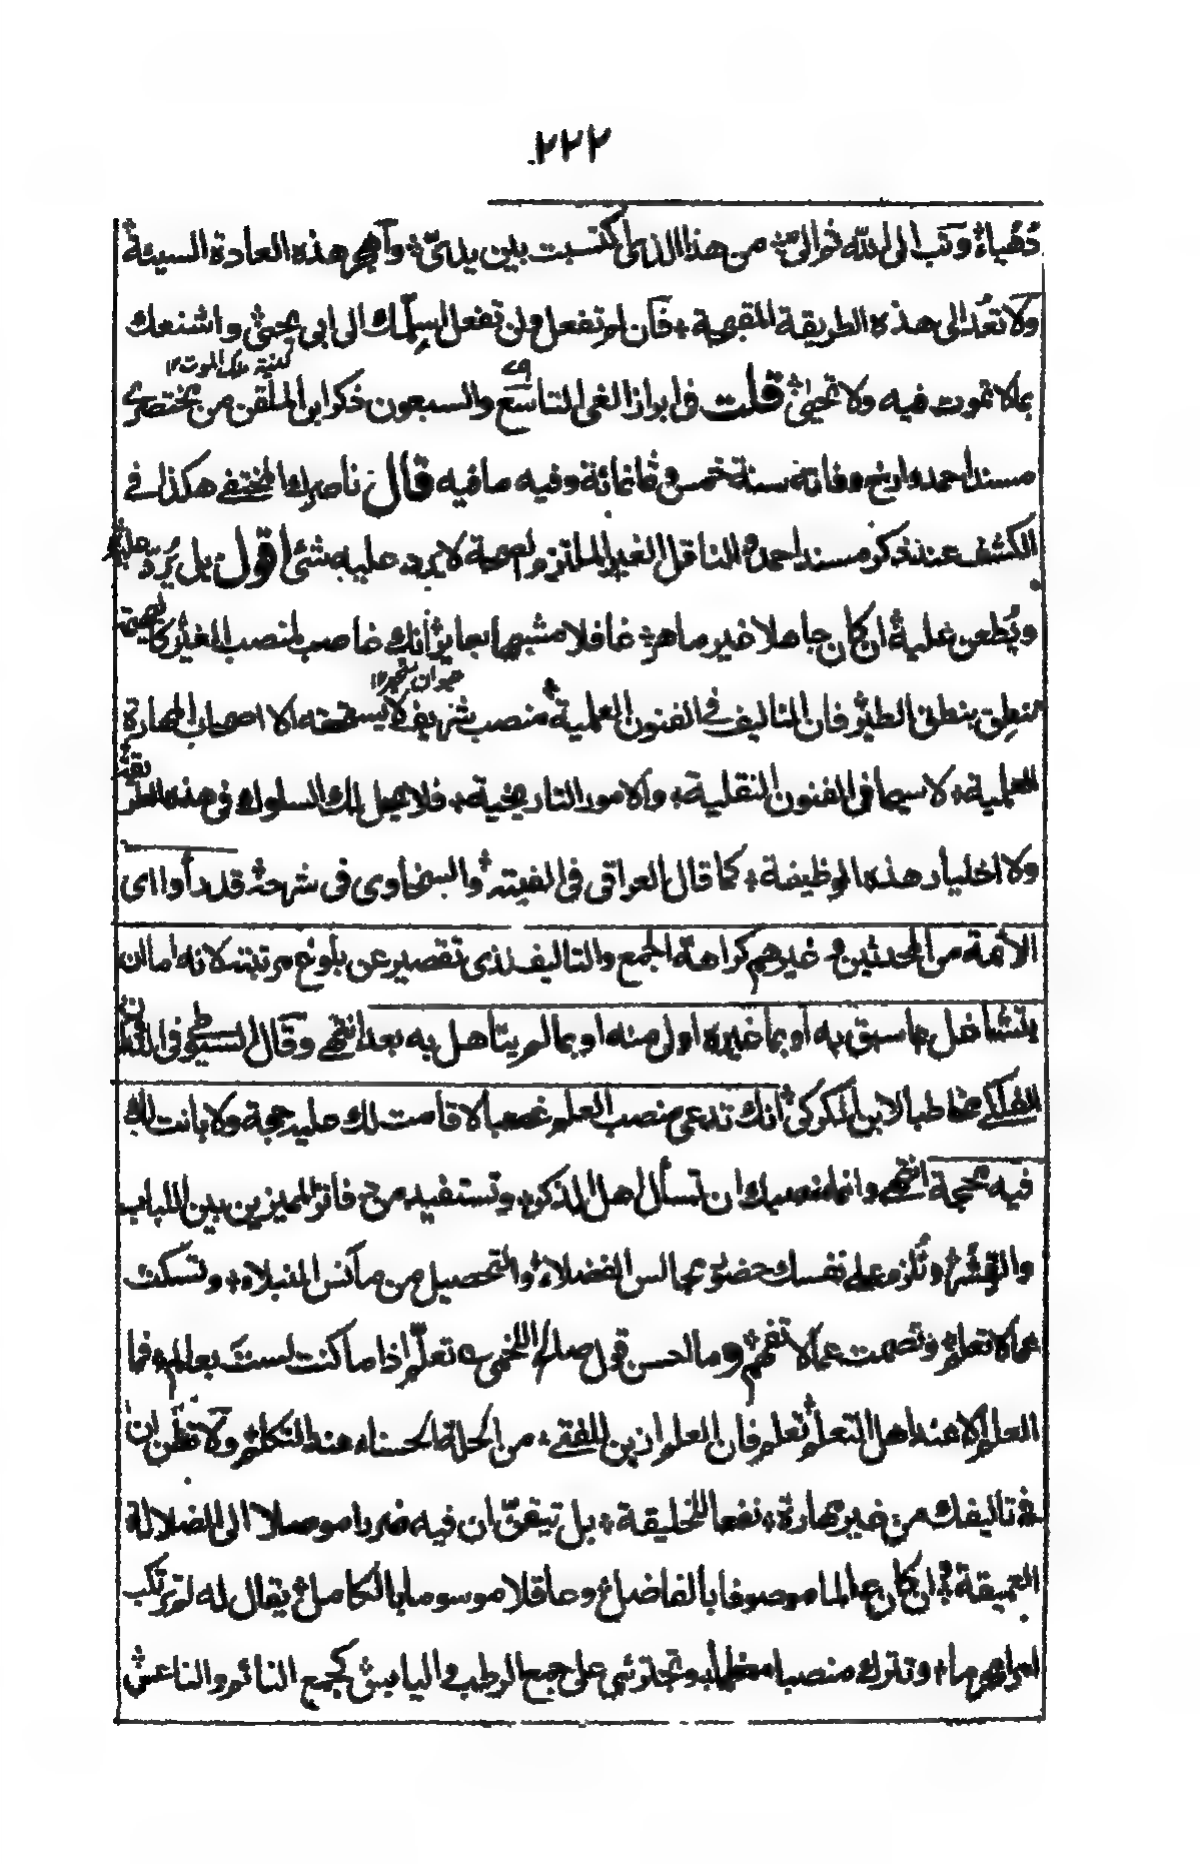 ٢٢٢
دهياء وتب الى الله تعالى من هذا الذى اكتسبت بين يديّ واهجر هذه العادة السيئة
ولا تعد الى هذه الطريقة القبيحة فان لم تفعل ولن تفعل اسلّمك الى ابى يحيى واشنعك
كنية ملك الموت ١٢
بما لا تموت فيه ولا تحيى قلت فى ابراز الغى التاسع والسبعون ذكر ابن الملقن من مختصرى
مسند احمد وارخ وفاته سنة خمس وثمانمائة وفيه ما فيه قال ناصرك المختفى هكذا فى
الكشف عند ذكر مسند احمد والناقل الغير الملتزم لصحة لا يرد عليه شئ اقول بل يرد عليه
ويطعن عليه ان كان جاهلا غير ماهر غافلا مشبها بجائر انك غاصب لمنصب الغير كبهيمة
حيوان ١٢
تنطق بنطق الطير فان التاليف فى الفنون العلمية منصب شريف لا يستحقه الا اصحاب المهارة
العلمية لا سيما فى الفنون النقلية والامور التاريخية فلا يحل لك السلوك فى هذه الطريقة
ولا اختيار هذه الوظيفة كما قال العراقى فى الفيته والسخاوى فى شرحه قد رأوا اى
الائمة من المحدثين وغيرهم كراهة الجمع والتاليف لذى تقصير عن بلوغ مرتبته لانه اما ان
يتشاغل بما سبق به او بما غيره اولى منه او بما لم يتاهل به بعد انتهى وقال السيوطى فى
مخاطبا لابن الكركى انك تدعى منصب العلم غصبا لا قامت لك عليه حجة ولا بانت لك
فيه محجة انتهى وانما منصبك ان تسأل اهل الذكر وتستفيد من فائز المميزين بين اللباب
والقشر وتلزم على نفسك حضور مجالس الفضلاء والتحصيل من مآنس النبلاء وتسكت
عما لا تعلم وتصمت عما لا تفهم وما احسن قول صالح اللخمى تعلّم اذا ما كنت لست بعالم فما
العلم الا عند اهل التعلم تعلم فان العلم ازين للفتى من الحلة الحسناء عند التكلم ولا تظن ان
فى تاليفك من غير مهارة نفعا للخليقة بل تيقن ان فيه ضررا موصلا الى الضلالة
العميقة وان كان عالما موصوفا بالفاضل وعاقلا موسوما بالكامل يقال له لم ترتكب
امرا وتترك منصبا وتجترئ على جمع الرطب واليابس كجمع النائم والناعس